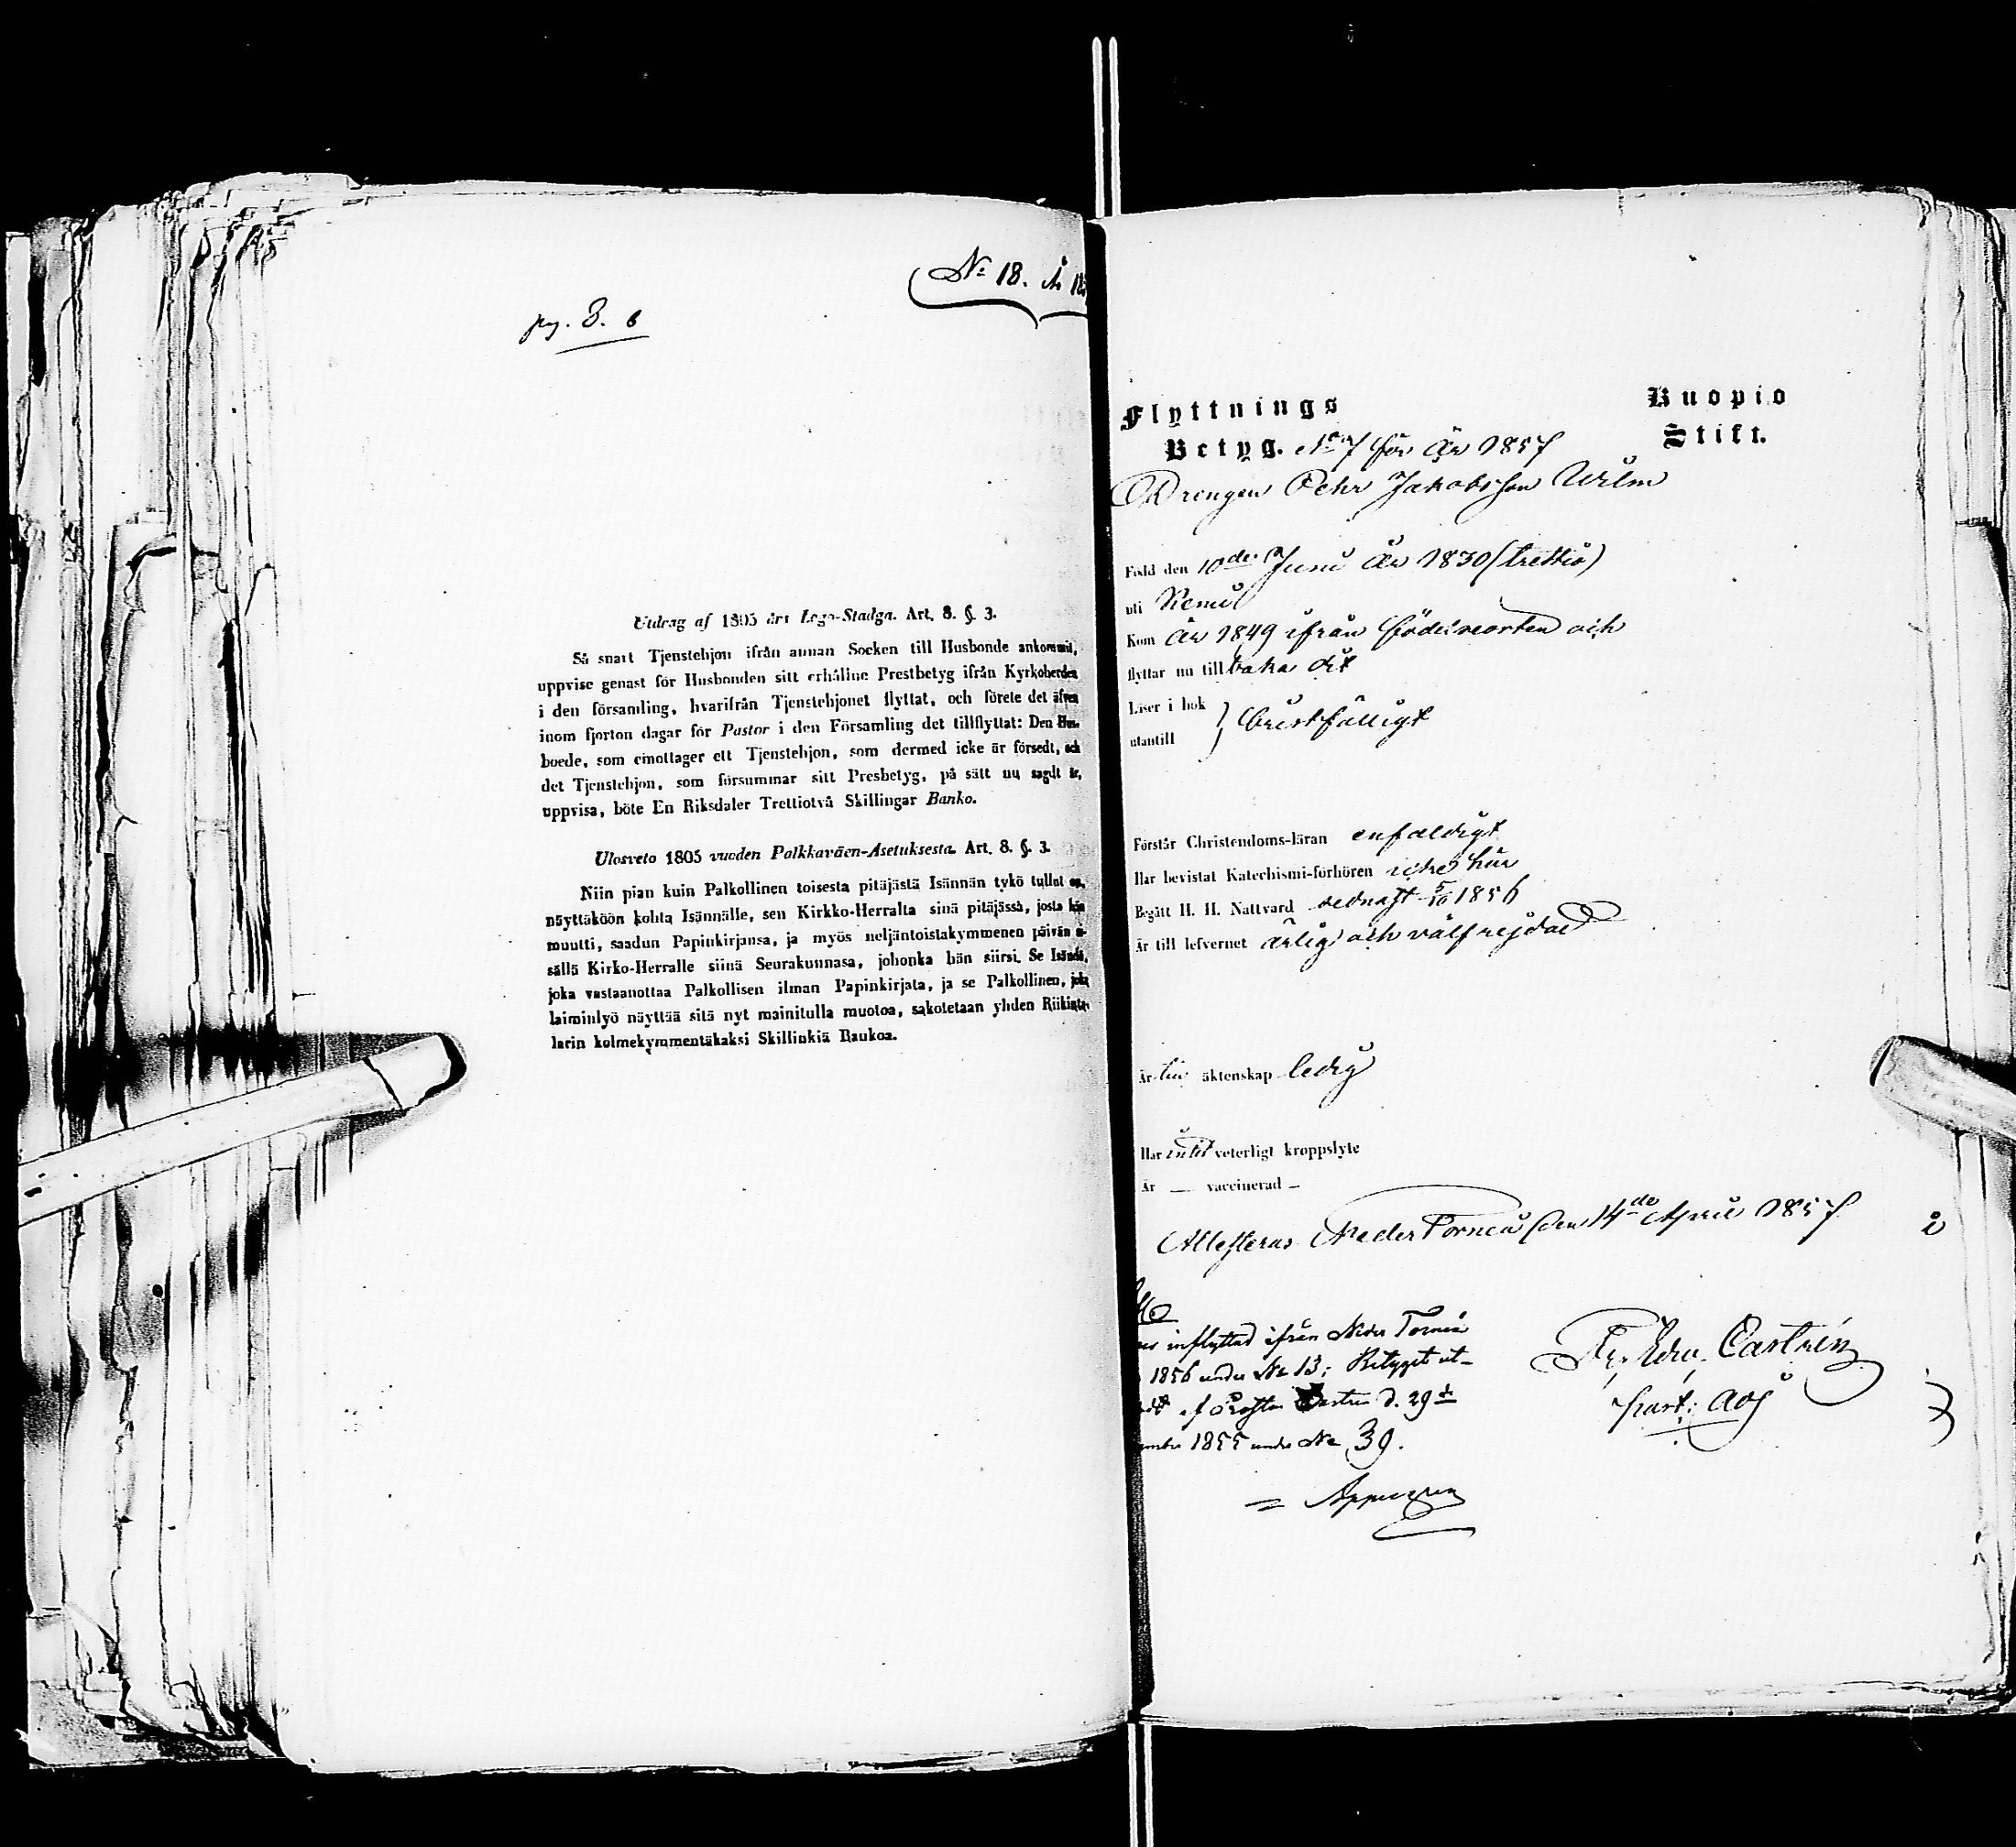 No 18. År 18
pag. 8. b
Utdrag af 1805 års Lego-Stadga. Art. 8. §. 3.
Så snart Tjenstehjon ifrån annan Socken till Husbonde ankommit,
uppvise genast för Husbonden sitt erhållne Prestbetyg ifrån Kyrkoherden
i den församling, hvarifrån Tjenstehjonet flyttat, och förete det äfven
inom fjorton dagar för Pastor i den Församling det tillflyttat: Den Hus-
boede, som emottager ett Tjenstehjon, som dermed icke är försedt, och
det Tjenstehjon, som försummar sitt Presbetyg, på sätt nu sagdt är,
uppvisa, böte En Riksdaler Trettiotvå Skillingar Banko.
Ulosveto 1805 vuoden Palkkaväen-Asetuksesta. Art. 8. §. 3.
Niin pian kuin Palkollinen toisesta pitäjästä Isännän tykö tullut on,
näyttäköön kohta Isännälle, sen Kirkko-Herralta sinä pitäjässä, josta hän
muutti, saadun Papinkirjansa, ja myös neljäntoistakymmenen päivän si-
sällä Kirko-Herralle siinä Seurakunnasa, johonka hän siirsi. Se Isändä,
joka vastaanottaa Palkollisen ilman Papinkirjata, ja se Palkollinen, joka
laiminlyö näyttää sitä nyt mainitulla muotoa, sakotetaan yhden Riikinta-
larin kolmekymmentäkaksi Skillinkiä Baukoa.
Flyttnings Kuopio
Betyg. No 7 för År 1857 Stift.
Drengen Pehr Jakobsson
Född den 10de Junii År 1830 (trettio)
uti Kemi
Kom År 1849 ifrån födelseorten och
flyttar nu till baka dit
Läser i bok
utantill } bristfälligt
Förstår Christendoms-läran enfaldigt
Har bevistat Katechismi-förhören icke här
Begått H. H. Nattvard sednast 5/10 1856
Är till lefvernet ärlig och välfrejdad
Är till äktenskap ledig
Har intet veterligt kroppslyte
Är — vaccinerad —
Attesteras Neder Torneå den 14de April 1857
inflyttad ifrån Neder Torneå
1856 under No 13; Betyget ut-
af Prosten Castrén d. 29de
1855 under No 39.
Castrén
past: adj